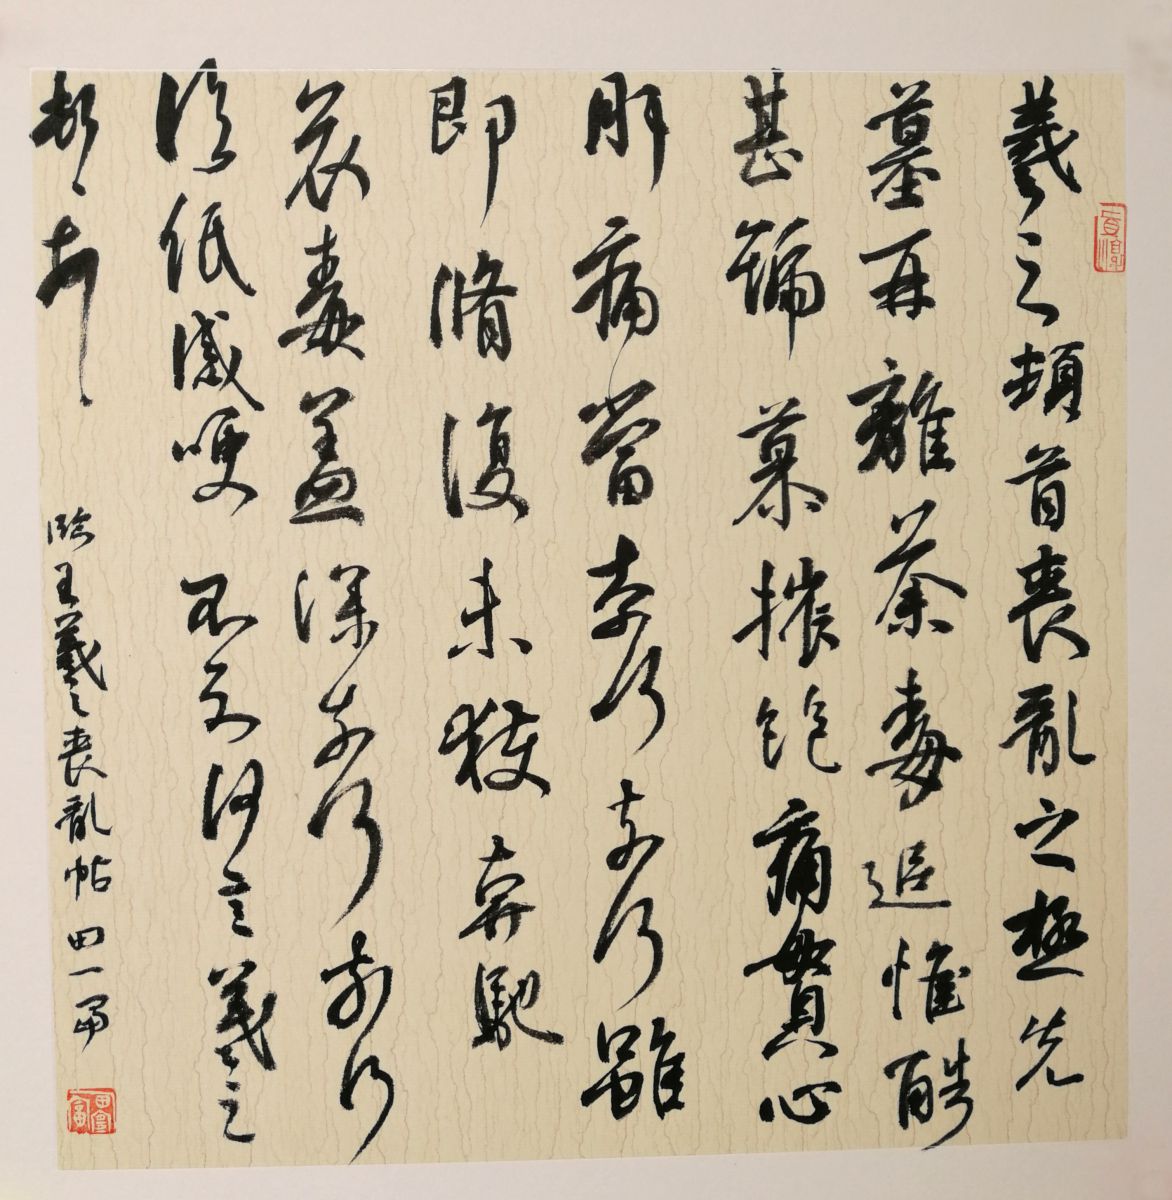 羲之頓首喪亂之極先
墓再離荼毒追惟酷
甚號慕摧絕痛貫心
肝痛當奈何奈何雖
即脩復未獲奔馳
哀毒益深奈何奈何
臨紙感哽不知何言羲之
頓〻首〻
臨王羲之喪亂帖 田一